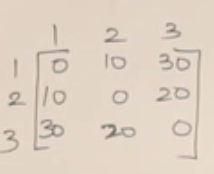 1 2 3
1 0 10 30
2 10 0 20
3 30 20 0